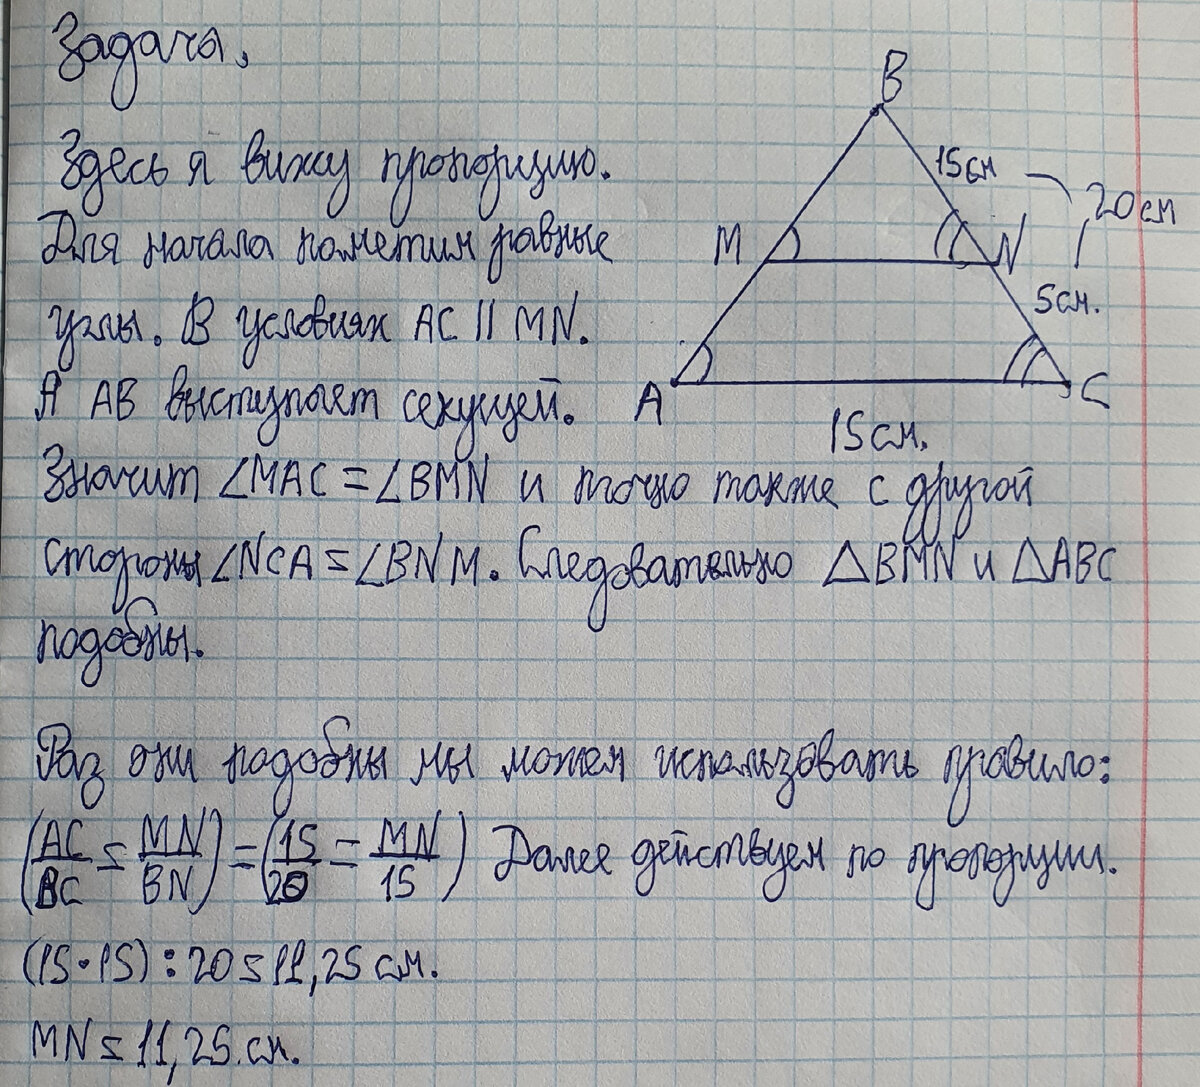 Задача.
B
15см
20см
M
N
5см.
A
C
15см.
Здесь я вижу пропорцию.
Для начала пометим равные
углы. В условиях AC || MN.
А AB выступает секущей.
Значит ∠MAC = ∠BMN и точно также с другой
стороны ∠NCA = ∠BNM. Следовательно △BMN и △ABC
подобны.
Раз они подобны мы можем использовать правило:
(AC/BC = MN/BN) = (15/20 = MN/15) Далее действуем по пропорции.
(15·15) : 20 = 11,25 см.
MN = 11,25 см.